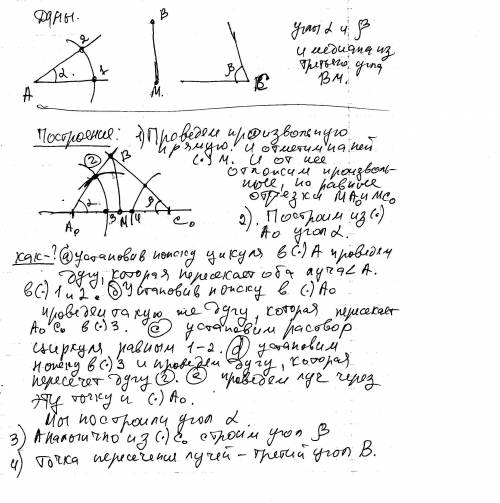 Даны.
B
2
α
1
A
M
β
C
углы α и β
и медиана из
третьего угла
BM.
Построение: 1) Проведем произвольную
прямую. и отметим на ней
(·) M. И от нее
отложим произволь-
ные, но равные
отрезки MA₀ и MC₀
2). Построим из (·)
A₀ угол α.
2
B
α
3
M
4
β
A₀
C₀
как-? a) установив ножку циркуля в (·) A проведем
дугу, которая пересекает оба луча ∠ A.
в (·) 1 и 2. б) Установив ножку в (·) A₀
проведем такую же дугу, которая пересекает
A₀ C₀ в (·) 3. c) установим раствор
циркуля равным 1-2. d) установим
ножку в (·) 3 и проведем дугу, которая
пересечет дугу (2). e) проведем луч через
эту точку и (·) A₀.
Мы построили угол α
3) Аналогично из (·) C₀ строим угол β
4) Точка пересечения лучей - третий угол B.